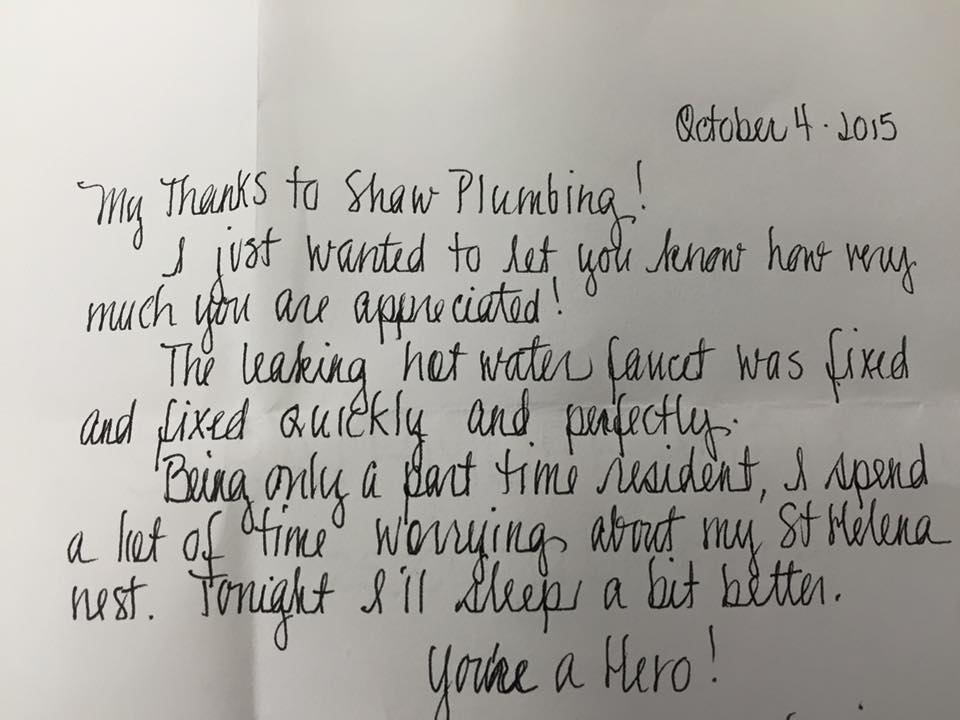 October 4 · 2015
My Thanks to Shaw Plumbing!
I just wanted to let you know how very
much you are appreciated!
The leaking hot water faucet was fixed
and fixed quickly and perfectly.
Being only a part time resident, I spend
a lot of time worrying about my St Helena
nest. Tonight I'll sleep a bit better.
You're a Hero!